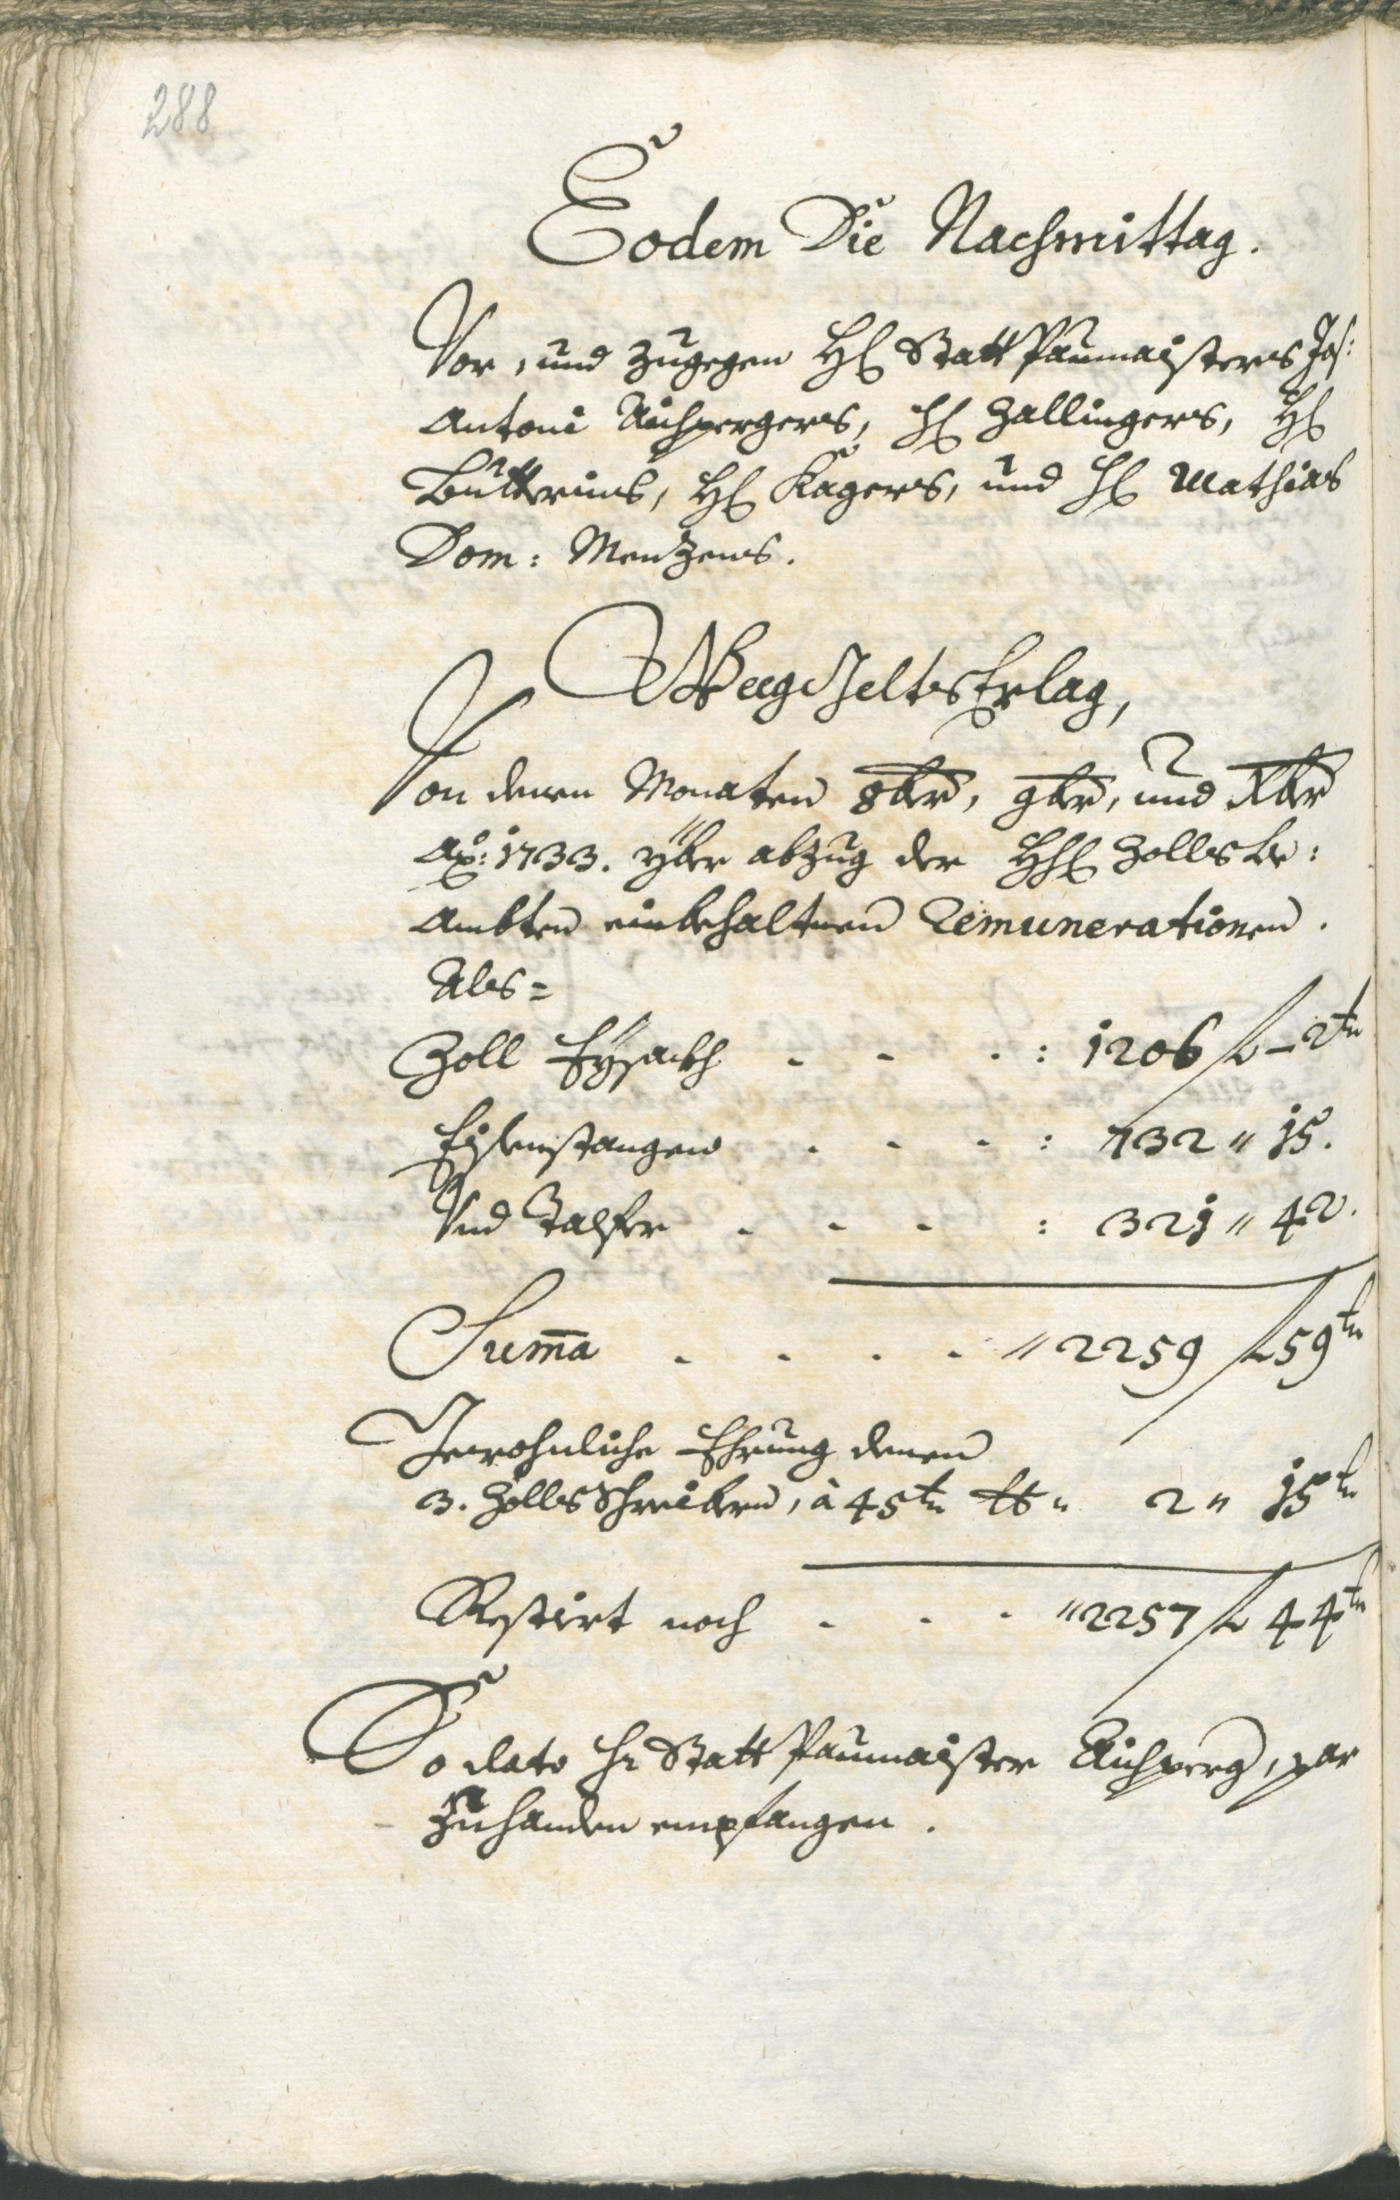 288
Eodem Die Nachmittag.
Vor, und zugegen H: Statt Paumaisters Jos:
Antoni Aichpergers, H: Zallingers, H:
Butterins, H: Kagers, und H: Mathias
Dom: Menzens.
WeegGelts Erlag,
Von denen Monaten 8ber, 9ber, und Xber
Ao: 1733. yber abzug der HH: Zolls be:
Ambten einbehaltnen Remunerationen.
Als=
Zoll Eysackh - - - : 1206 f - 2 kr
Eysenstangen - - - : 732 " 15.
Und Talfer - - - : 321 " 42.
Suma - - - - " 2259 f 59 kr
Gewohnliche Ehrung denen
3. Zolls Schreibern, à 45 kr tt " 2 " 15 kr
Restirt noch - - - " 2257 f 44 kr
So dato Hr Statt Paumaister Aichperg, par
zuhanden empfangen.